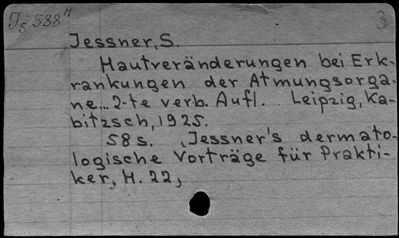 J5 588 H 3
Jessner, S.
Hautveränderungen bei Erk-
rankungen der Atmungsorga-
ne... 2-te verb. Aufl. Leipzig, Ka-
bitzsch, 1925.
58 s. „Jessner's dermato-
logische Vorträge für Prakti-
ker, H. 22„